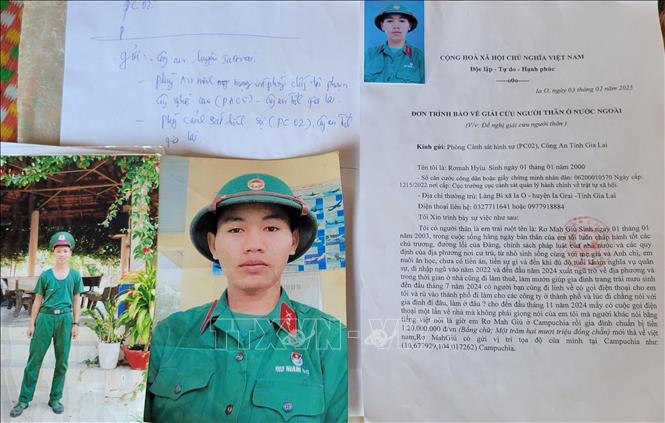 PC02.
gửi: - công an huyện Iagrai.
- phòng An ninh mạng và phòng chống tội phạm
công nghệ cao (PA05) - công an tỉnh gia lai.
- phòng cảnh sát hình sự (PC02), công an tỉnh
gia lai
CỘNG HOÀ XÃ HỘI CHỦ NGHĨA VIỆT NAM
Độc lập - Tự do - Hạnh phúc
-----o0o-----
Ia O, ngày 03 tháng 02 năm 2025
ĐƠN TRÌNH BÁO VỀ GIẢI CỨU NGƯỜI THÂN Ở NƯỚC NGOÀI
(V/v: Đề nghị giải cứu người thân )
Kính gửi: Phòng Cảnh sát hình sự (PC02), Công An Tỉnh Gia Lai
Tên tôi là: Romah Hyiu Sinh ngày 01 tháng 01 năm 2000
- Số căn cước công dân hoặc giấy chứng minh nhân dân: 06200010570 Ngày cấp:
1215/2022 nơi cấp: Cục trưởng cục cảnh sát quản lý hành chính về trật tự xã hội.
- Địa chỉ thường trú: Làng Bi xã Ia O - huyện Ia Grai -Tỉnh Gia Lai
Điện thoại liên hệ: 0327711641 hoặc 0977918884
Tôi Xin trình bày sự việc như sau:
Tôi có người thân là em trai ruột tên là: Rơ Mah Giú Sinh ngày 01 tháng 01
năm 2003, trong cuộc sống hằng ngày bản thân của em tôi luôn chấp hành tốt các
chủ trương, đường lối của Đảng, chính sách pháp luật của nhà nước và các quy
định của địa phương nơi cư trú, từ nhỏ sinh sống cùng với mẹ già và Anh chị, em
nuôi ăn học, chưa có tiền án, tiền sự gì và đến khi đủ độ tuổi tham nghĩa vụ quân
sự, đi nhập ngũ vào năm 2022 và đến đầu năm 2024 xuất ngũ trở về địa phương và
trong thời gian ở nhà cũng đi làm thuê, làm mướn giúp gia đình trang trải mưu sinh
đến đầu tháng 7 năm 2024 có người bạn cùng đi lính về có gọi điện thoại cho em
tôi và rủ vào thành phố đi làm cho các công ty ở thành phố và lúc đi chẳng nói với
gia đình đi đâu, làm ở đâu ? cho đến đầu tháng 11 năm 2024 mấy có cuộc gọi điện
thoại một lần về nhà mà không phải giọng nói của em tôi mà người khác nói bằng
tiếng việt nói là giờ em Rơ Mah Giú ở Campuchia rồi gia đình chuẩn bị tiền
120.000.000 đ/vn (Bằng chữ: Một trăm hai mươi triệu đồng chẵn) mới thả về việt
nam,Rơ MahGiú có gửi vị trí tọa độ của mình tại Campuchia như:
(10,677929,104,017262) Campuchia.
TTXVN